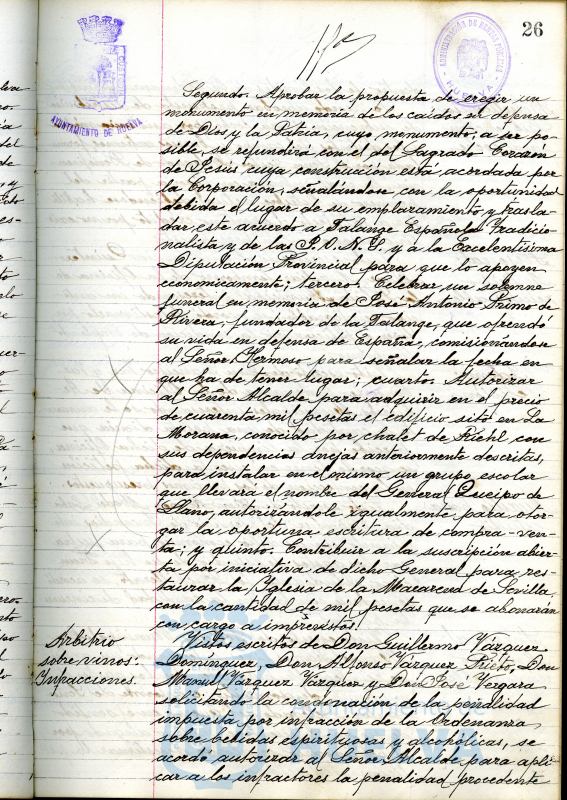 26
AYUNTAMIENTO DE HUELVA
HUELVA
Segundo. Aprobar la propuesta de eregir un
monumento en memoria de los caidos en defensa
de Dios y la Patria, cuyo monumento, a ser po-
sible, se refundirá con el del Sagrado Corazón
de Jesús cuya construcción está acordada por
la Corporación, señalándose con la oportunidad
debida el lugar de su emplazamiento y trasla-
dar este acuerdo a Falange Española Tradicio-
nalista y de las J.O.N.S. y a la Excelentísima
Diputación Provincial para que lo apoyen
economicamente; tercero. Celebrar un solemne
funeral en memoria de José Antonio Primo de
Rivera, fundador de la Falange, que ofrendó
su vida en defensa de España, comisionándose
al Señor Hermoso para señalar la fecha en
que ha de tener lugar; cuarto. Autorizar
al Señor Alcalde para adquirir en el precio
de cuarenta mil pesetas el edificio sito en La
Morana, conocido por chalet de Riehl con
sus dependencias anejas anteriormente descritas,
para instalar en el mismo un grupo escolar
que llevará el nombre del General Queipo de
Llano, autorizándole igualmente para otor-
gar la oportuna escritura de compra-ven-
ta; y quinto. Contribuir a la suscripción abier-
ta por iniciativa de dicho General para res-
taurar la Iglesia de la Macarena de Sevilla,
con la cantidad de mil pesetas que se abonarán
con cargo a imprevistos.
Arbitrio
sobre vinos:
Infracciones.
Vistos escritos de Don Guillermo Vázquez
Domínguez, Don Alfonso Vázquez Prieto, Don
Manuel Vázquez Vázquez y Don José Vergara
solicitando la condonación de la penalidad
impuesta por infracción de la Ordenanza
sobre bebidas espirituosas y alcohólicas, se
acordó autorizar al Señor Alcalde para apli-
car a los infractores la penalidad procedente